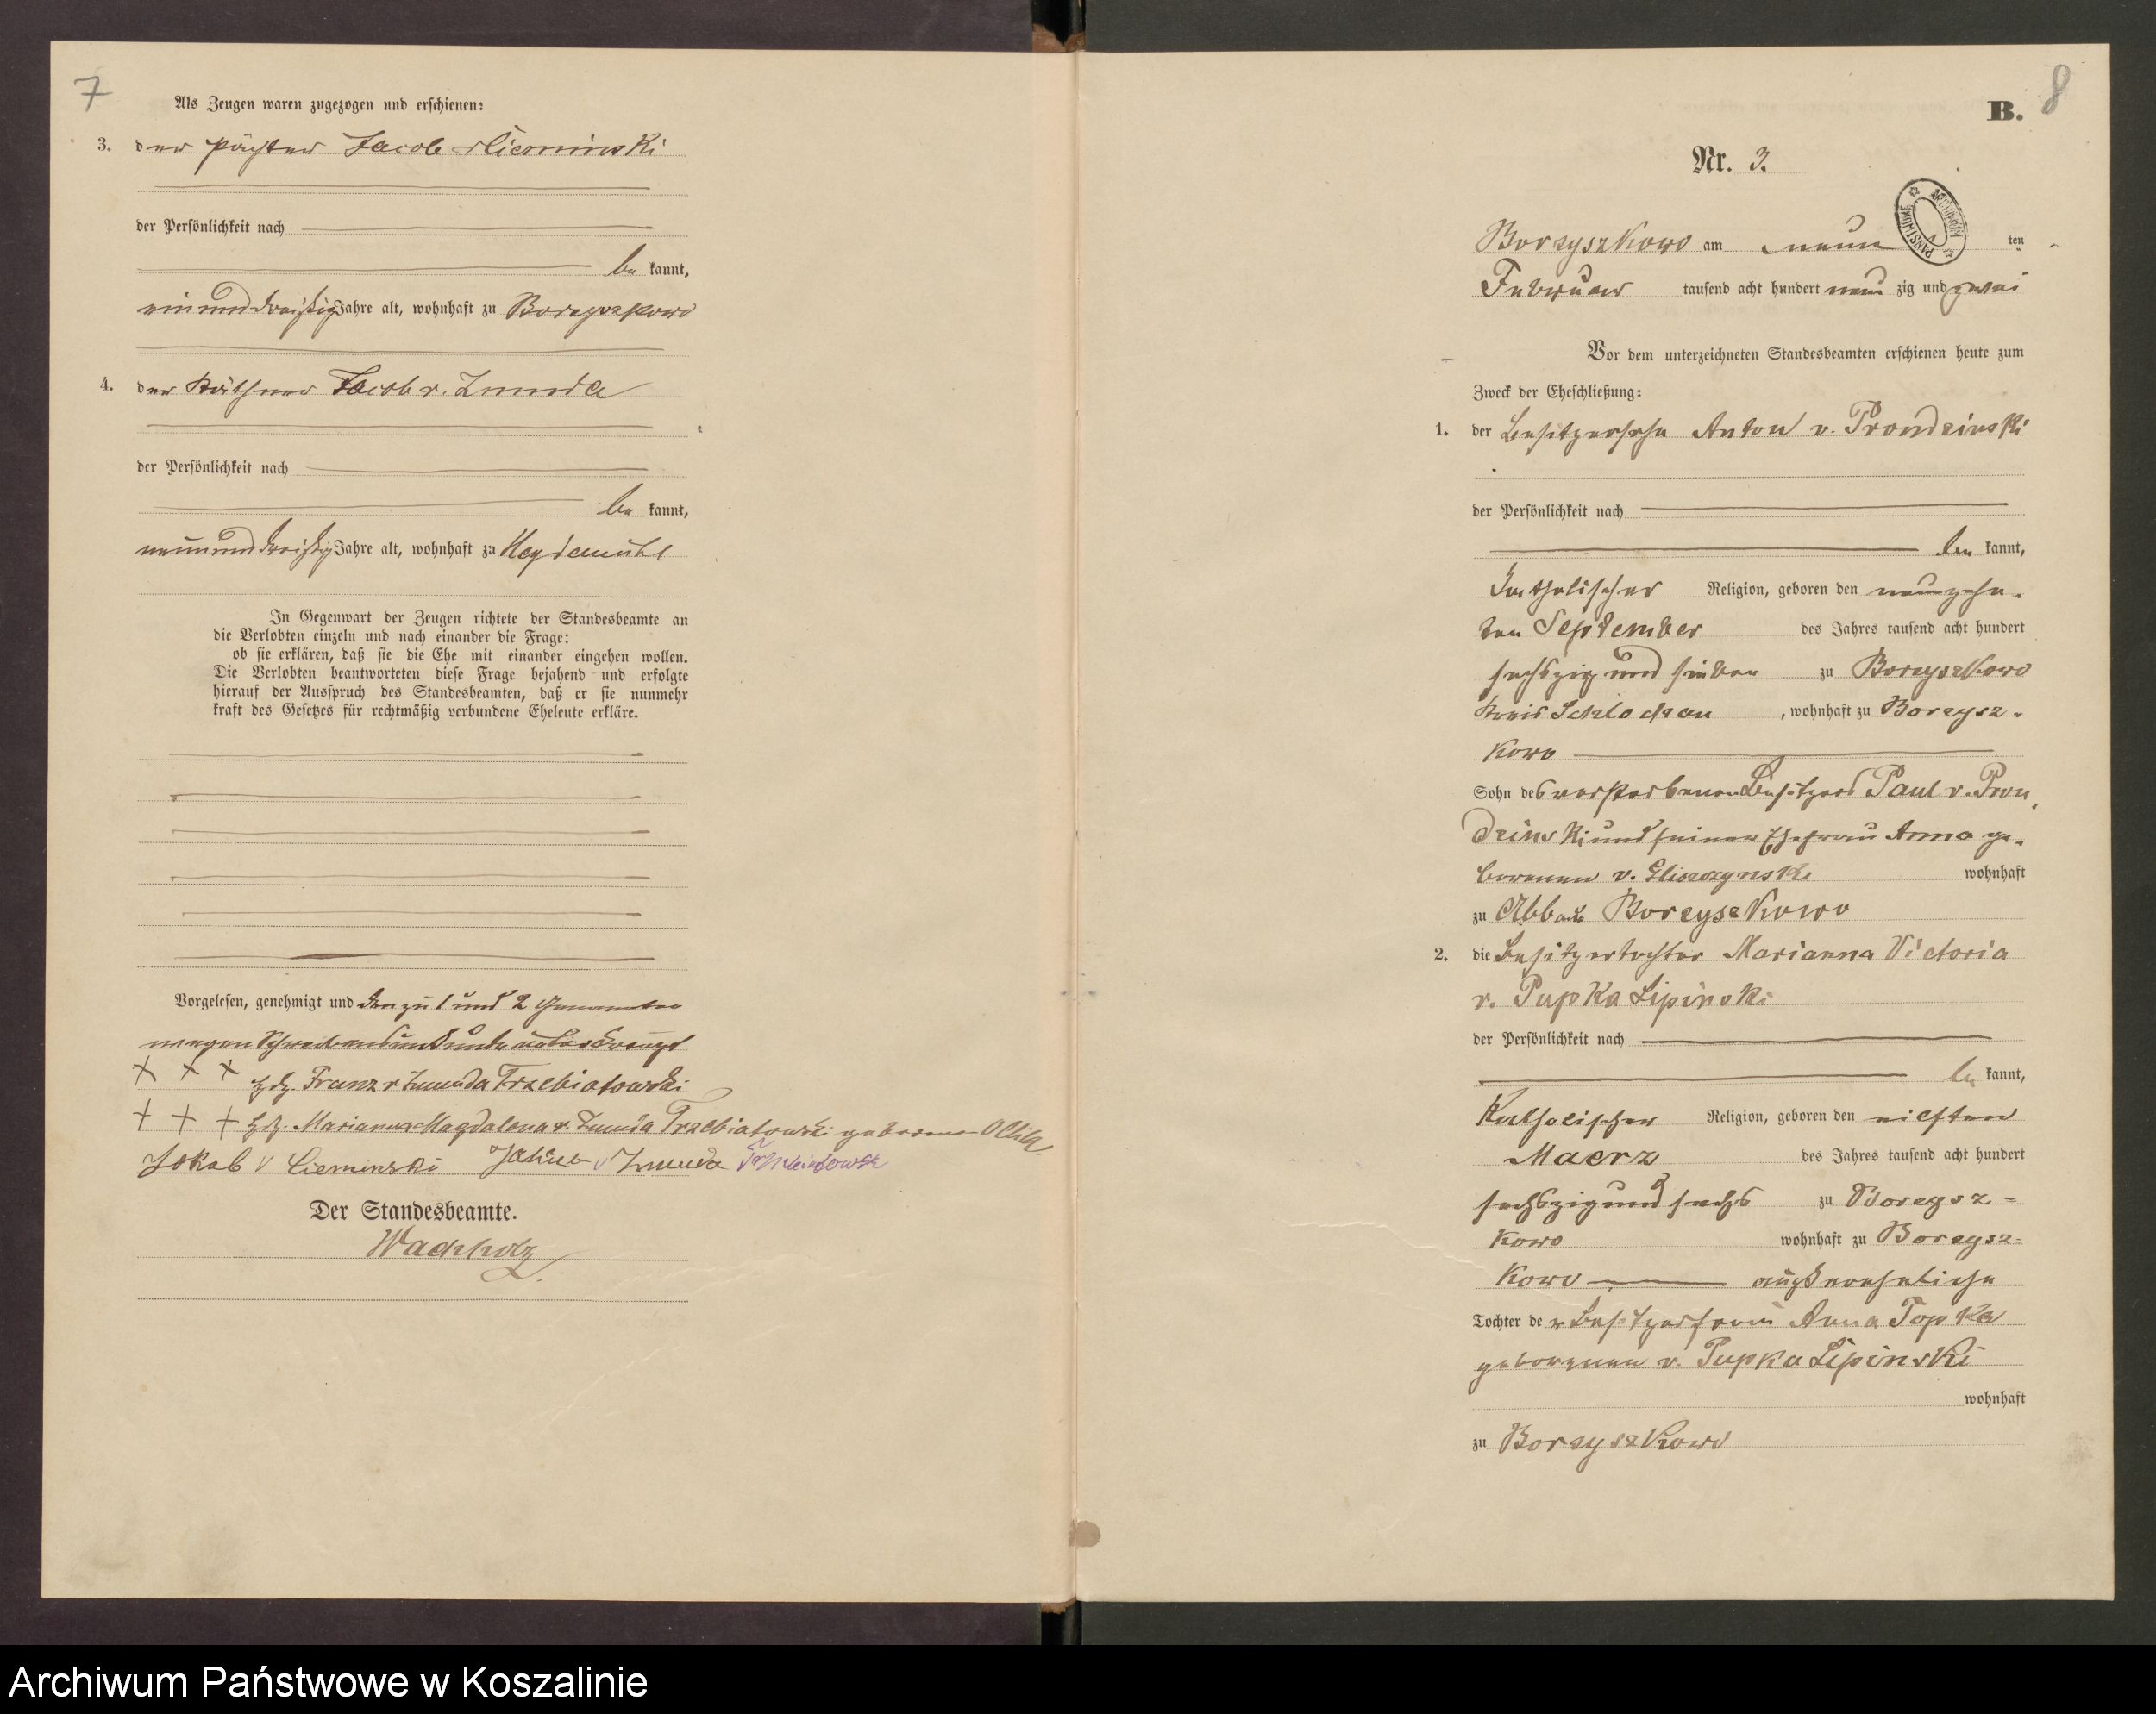 7
Als Zeugen waren zugezogen und erschienen:
3. der Pächter Jacob v Cieminski
der Persönlichkeit nach
be kannt,
ein und dreißig Jahre alt, wohnhaft zu Borzyszkowo
4. der Käthner Jacob v. Zmuda
der Persönlichkeit nach
be kannt,
neun und dreißig Jahre alt, wohnhaft zu Heydemühl
In Gegenwart der Zeugen richtete der Standesbeamte an
die Verlobten einzeln und nach einander die Frage:
ob sie erklären, daß sie die Ehe mit einander eingehen wollen.
Die Verlobten beantworteten diese Frage bejahend und erfolgte
hierauf der Ausspruch des Standesbeamten, daß er sie nunmehr
kraft des Gesetzes für rechtmäßig verbundene Eheleute erkläre.
Vorgelesen, genehmigt und von zu 1 und 2 Genannten
wegen Schreibensunkunde unterkreuzt
+ + + Hdz. Franz v Zmuda Trzebiatowski
+ + + Hdz. Marianna Magdalena v. Zmuda Trzebiatowski geborene
Jakob v Cieminski Jakub v Zmuda
Der Standesbeamte.
Wachholz
8
B.
Nr. 3.
ARCHIWUM PAŃSTWOWE
Borzyszkowo am neun ten
Februar tausend acht hundert neun zig und zwei
Vor dem unterzeichneten Standesbeamten erschienen heute zum
Zweck der Eheschließung:
1. der Besitzersohn Anton v. Prondzinski
der Persönlichkeit nach
be kannt,
katholischer Religion, geboren den neunzehn-
ten September des Jahres tausend acht hundert
sechszig und sieben zu Borzyszkowo
Kreis Schlochau, wohnhaft zu Borzysz-
kowo
Sohn des verstorbenen Besitzers Paul v. Pron
dzinski und seiner Ehefrau Anna ge-
borenen v. Gliszczynski wohnhaft
zu Abbau Borzyszkowo
2. die Besitzertochter Marianna Victoria
v. Pupka Lipinski
der Persönlichkeit nach
be kannt,
Katholischer Religion, geboren den eilften
Maerz des Jahres tausend acht hundert
sechszig und sechs zu Borzysz-
kowo wohnhaft zu Borzysz-
kowo außereheliche
Tochter der Besitzerfrau Anna Topka
geborenen v. Pupka Lipinski
wohnhaft
zu Borzyszkowo
Archiwum Państwowe w Koszalinie